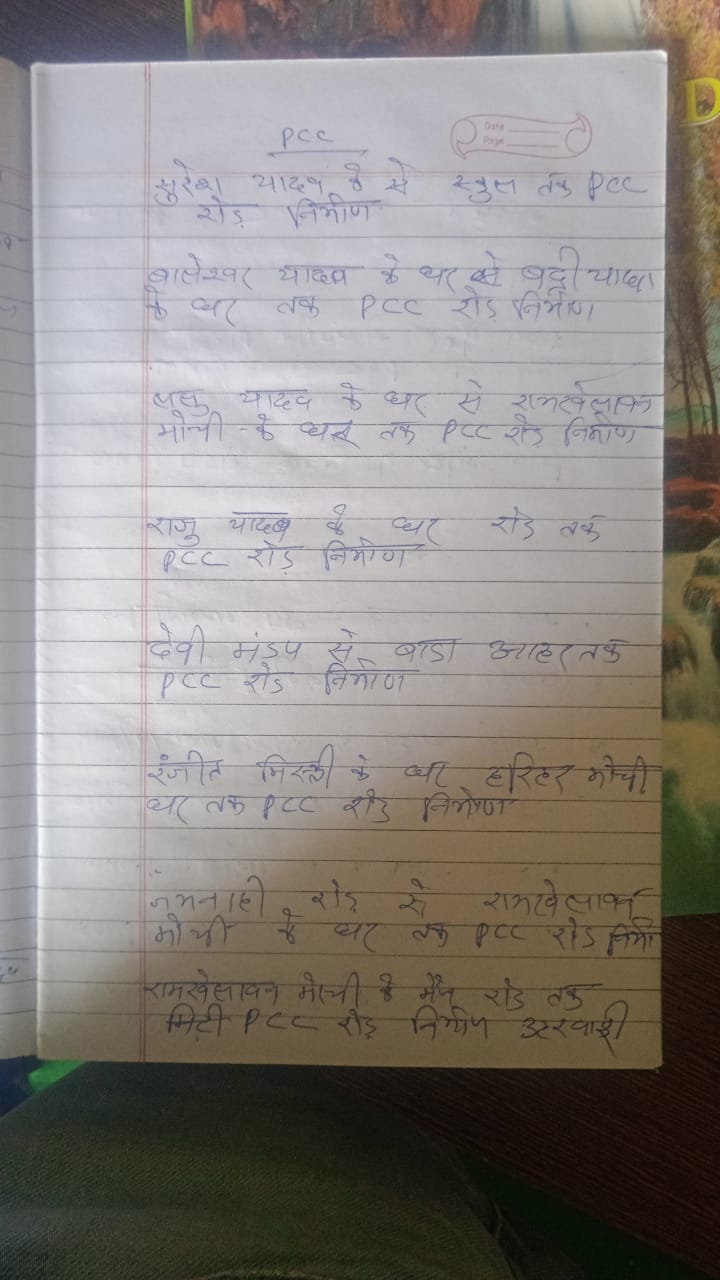 PCC
Date
Page
सुरेश यादव के से स्कुल तक PCC
रोड़ निर्माण
बालेश्वर यादव के घर से बद्री यादव
के घर तक PCC रोड़ निर्माण
लघु यादव के घर से रामखेलावन
मोची के घर तक PCC रोड़ निर्माण
राजु यादव के घर रोड तक
PCC रोड़ निर्माण
देवी मंडप से बाडा आहर तक
PCC रोड़ निर्माण
रंजीत मिस्त्री के घर हरिहर मोची
घर तक PCC रोड़ निर्माण
रोड़ से रामखेलावन
मोची के घर तक PCC रोड़ निर्मा
रामखेलावन मोची के मैन रोड तक
मिटी PCC रोड़ निर्माण